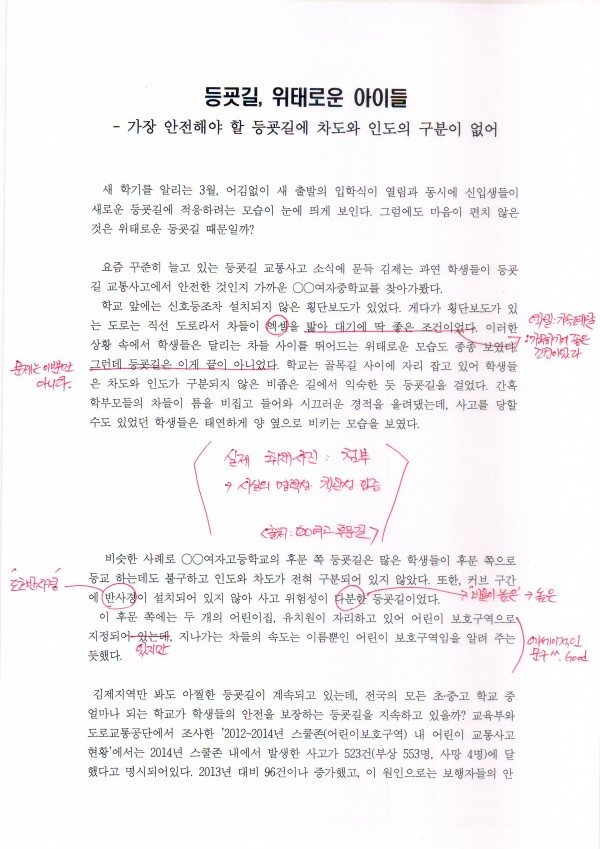 등굣길, 위태로운 아이들
- 가장 안전해야 할 등굣길에 차도와 인도의 구분이 없어
새 학기를 알리는 3월, 어김없이 새 출발의 입학식이 열림과 동시에 신입생들이
새로운 등굣길에 적응하려는 모습이 눈에 띄게 보인다. 그럼에도 마음이 편치 않은
것은 위태로운 등굣길 때문일까?
요즘 꾸준히 늘고 있는 등굣길 교통사고 소식에 문득 김제는 과연 학생들이 등굣
길 교통사고에서 안전한 것인지 가까운 〇〇여자중학교를 찾아가봤다.
학교 앞에는 신호등조차 설치되지 않은 횡단보도가 있었다. 게다가 횡단보도가 있
는 도로는 직선 도로라서 차들이 엑셀을 밟아 대기에 딱 좋은 조건이었다. 이러한
상황 속에서 학생들은 달리는 차들 사이를 뛰어드는 위태로운 모습도 종종 보였다.
그런데 등굣길은 이게 끝이 아니었다. 학교는 골목길 사이에 자리 잡고 있어 학생들
은 차도와 인도가 구분되지 않은 비좁은 길에서 익숙한 듯 등굣길을 걸었다. 간혹
학부모들의 차들이 틈을 비집고 들어와 시끄러운 경적을 울려댔는데, 사고를 당할
수도 있었던 학생들은 태연하게 양 옆으로 비키는 모습을 보였다.
엑셀: 가속페달
문제는 이뿐만
아니다.
실제 취재사진 : 첨부
→ 사실의 명확성
<출처: 〇〇여고 후문길>
비슷한 사례로 〇〇여자고등학교의 후문 쪽 등굣길은 많은 학생들이 후문 쪽으로
등교 하는데도 불구하고 인도와 차도가 전혀 구분되어 있지 않았다. 또한, 커브 구간
에 반사경이 설치되어 있지 않아 사고 위험성이 다분한 등굣길이었다.
도로반사경
→ "비율이 높은" → 높은
이 후문 쪽에는 두 개의 어린이집, 유치원이 자리하고 있어 어린이 보호구역으로
지정되어 있는데, 지나가는 차들의 속도는 이름뿐인 어린이 보호구역임을 알려 주는
듯했다.
있지만
문구 쓰. Good
김제지역만 봐도 아찔한 등굣길이 계속되고 있는데, 전국의 모든 초·중·고 학교 중
얼마나 되는 학교가 학생들의 안전을 보장하는 등굣길을 지속하고 있을까? 교육부와
도로교통공단에서 조사한 '2012~2014년 스쿨존(어린이보호구역) 내 어린이 교통사고
현황'에서는 2014년 스쿨존 내에서 발생한 사고가 523건(부상 553명, 사망 4명)에 달
했다고 명시되어있다. 2013년 대비 96건이나 증가했고, 이 원인으로는 보행자들의 안